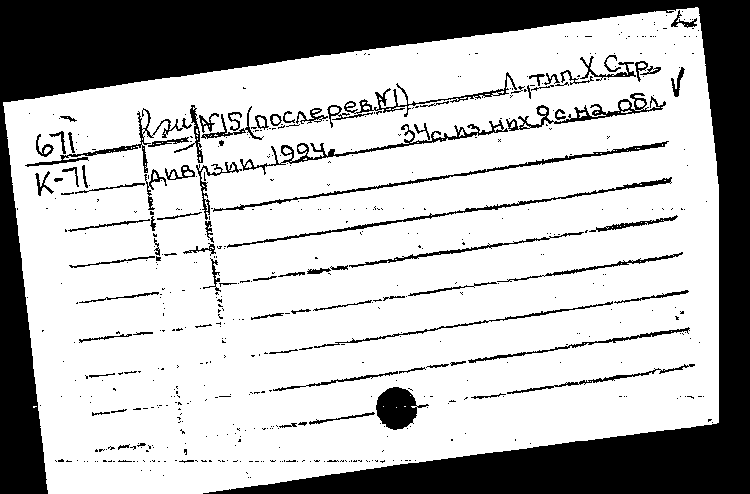 671
К-71
№15 (послерев. №1). Л., тип. X Стр.
дивизии, 1924. 34 с. из них 2 с. на обл.